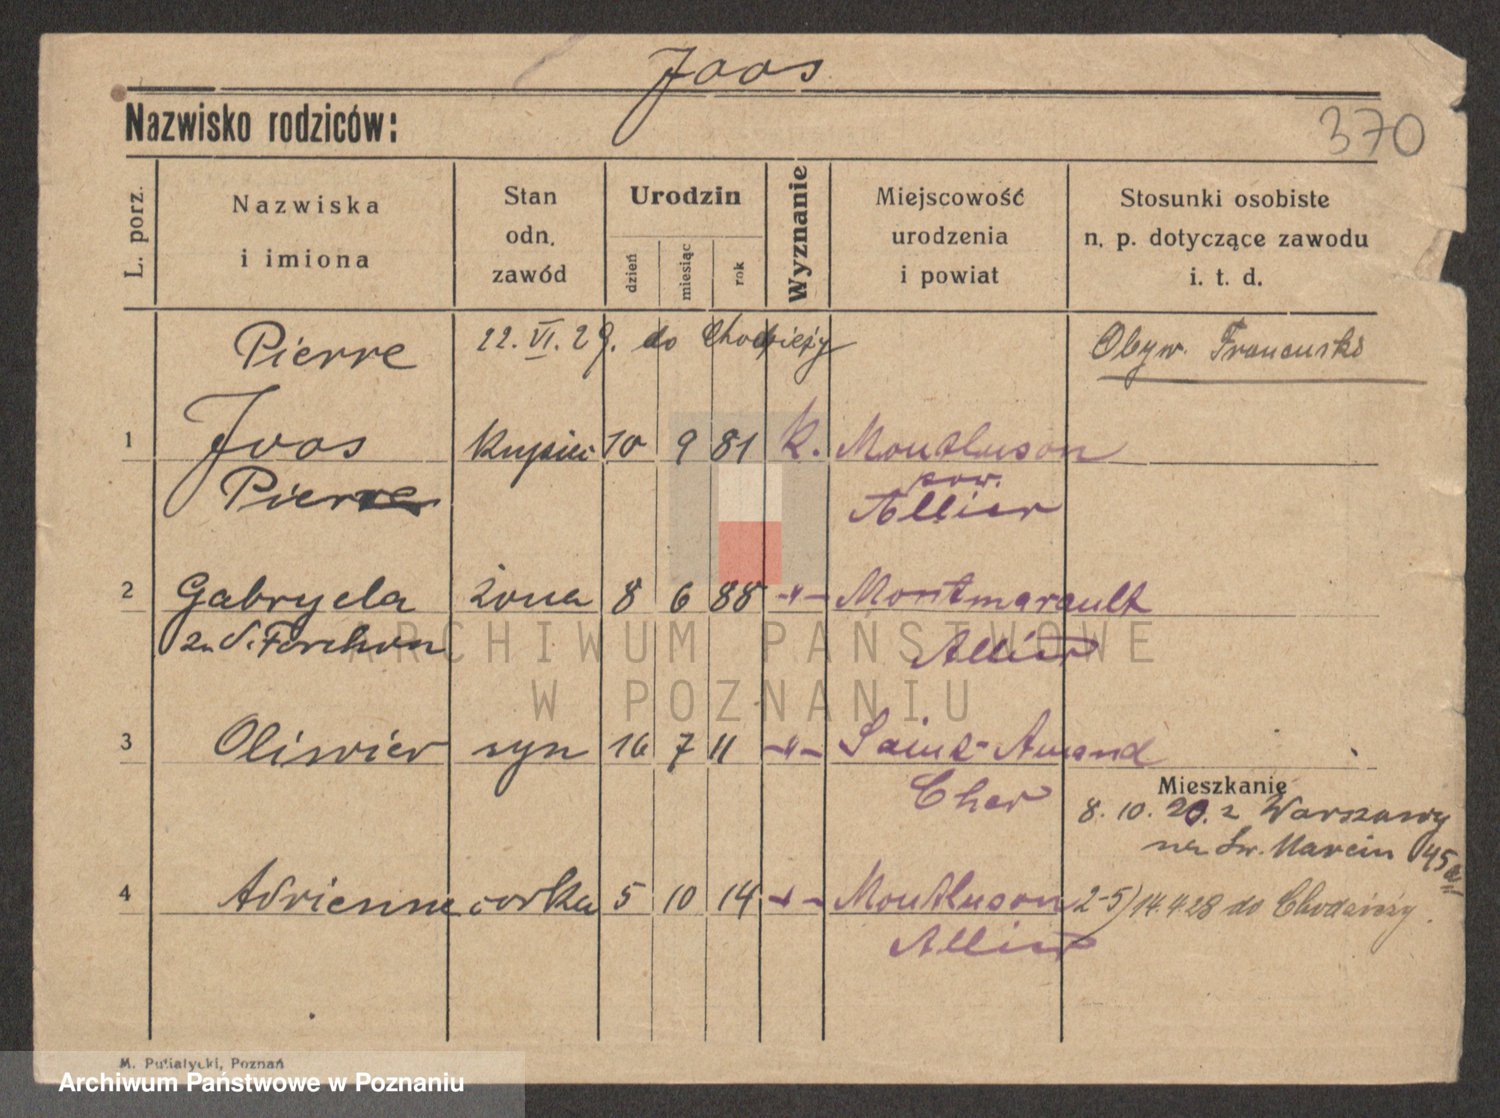 Joos
Nazwisko rodziców:
370
L. porz.
Nazwiska
i imiona
Stan
odn.
zawód
Urodzin
dzień
miesiąc
rok
Wyznanie
Miejscowość
urodzenia
i powiat
Stosunki osobiste
n. p. dotyczące zawodu
i. t. d.
Pierre 22. VI. 29. do Chodzieży Obyw. Francuski
1 Joos kupiec 10 9 81 k. Montluson
Pierre pow.
Allier
2 Gabryela żona 8 6 88 -"- Montmarault
Allier
ARCHIWUM PAŃSTWOWE
W POZNANIU
3 Oliwier syn 16 7 11 -"- Saint-Amand
Cher
Mieszkanie
8. 10. 20. z Warszawy
na Św. Marcin 45a
4 Adrienne córka 5 10 14 -"- Montluson 2-5) 14.4.28 do Chodzieży.
Allier
M. Putiatycki, Poznań
Archiwum Państwowe w Poznaniu